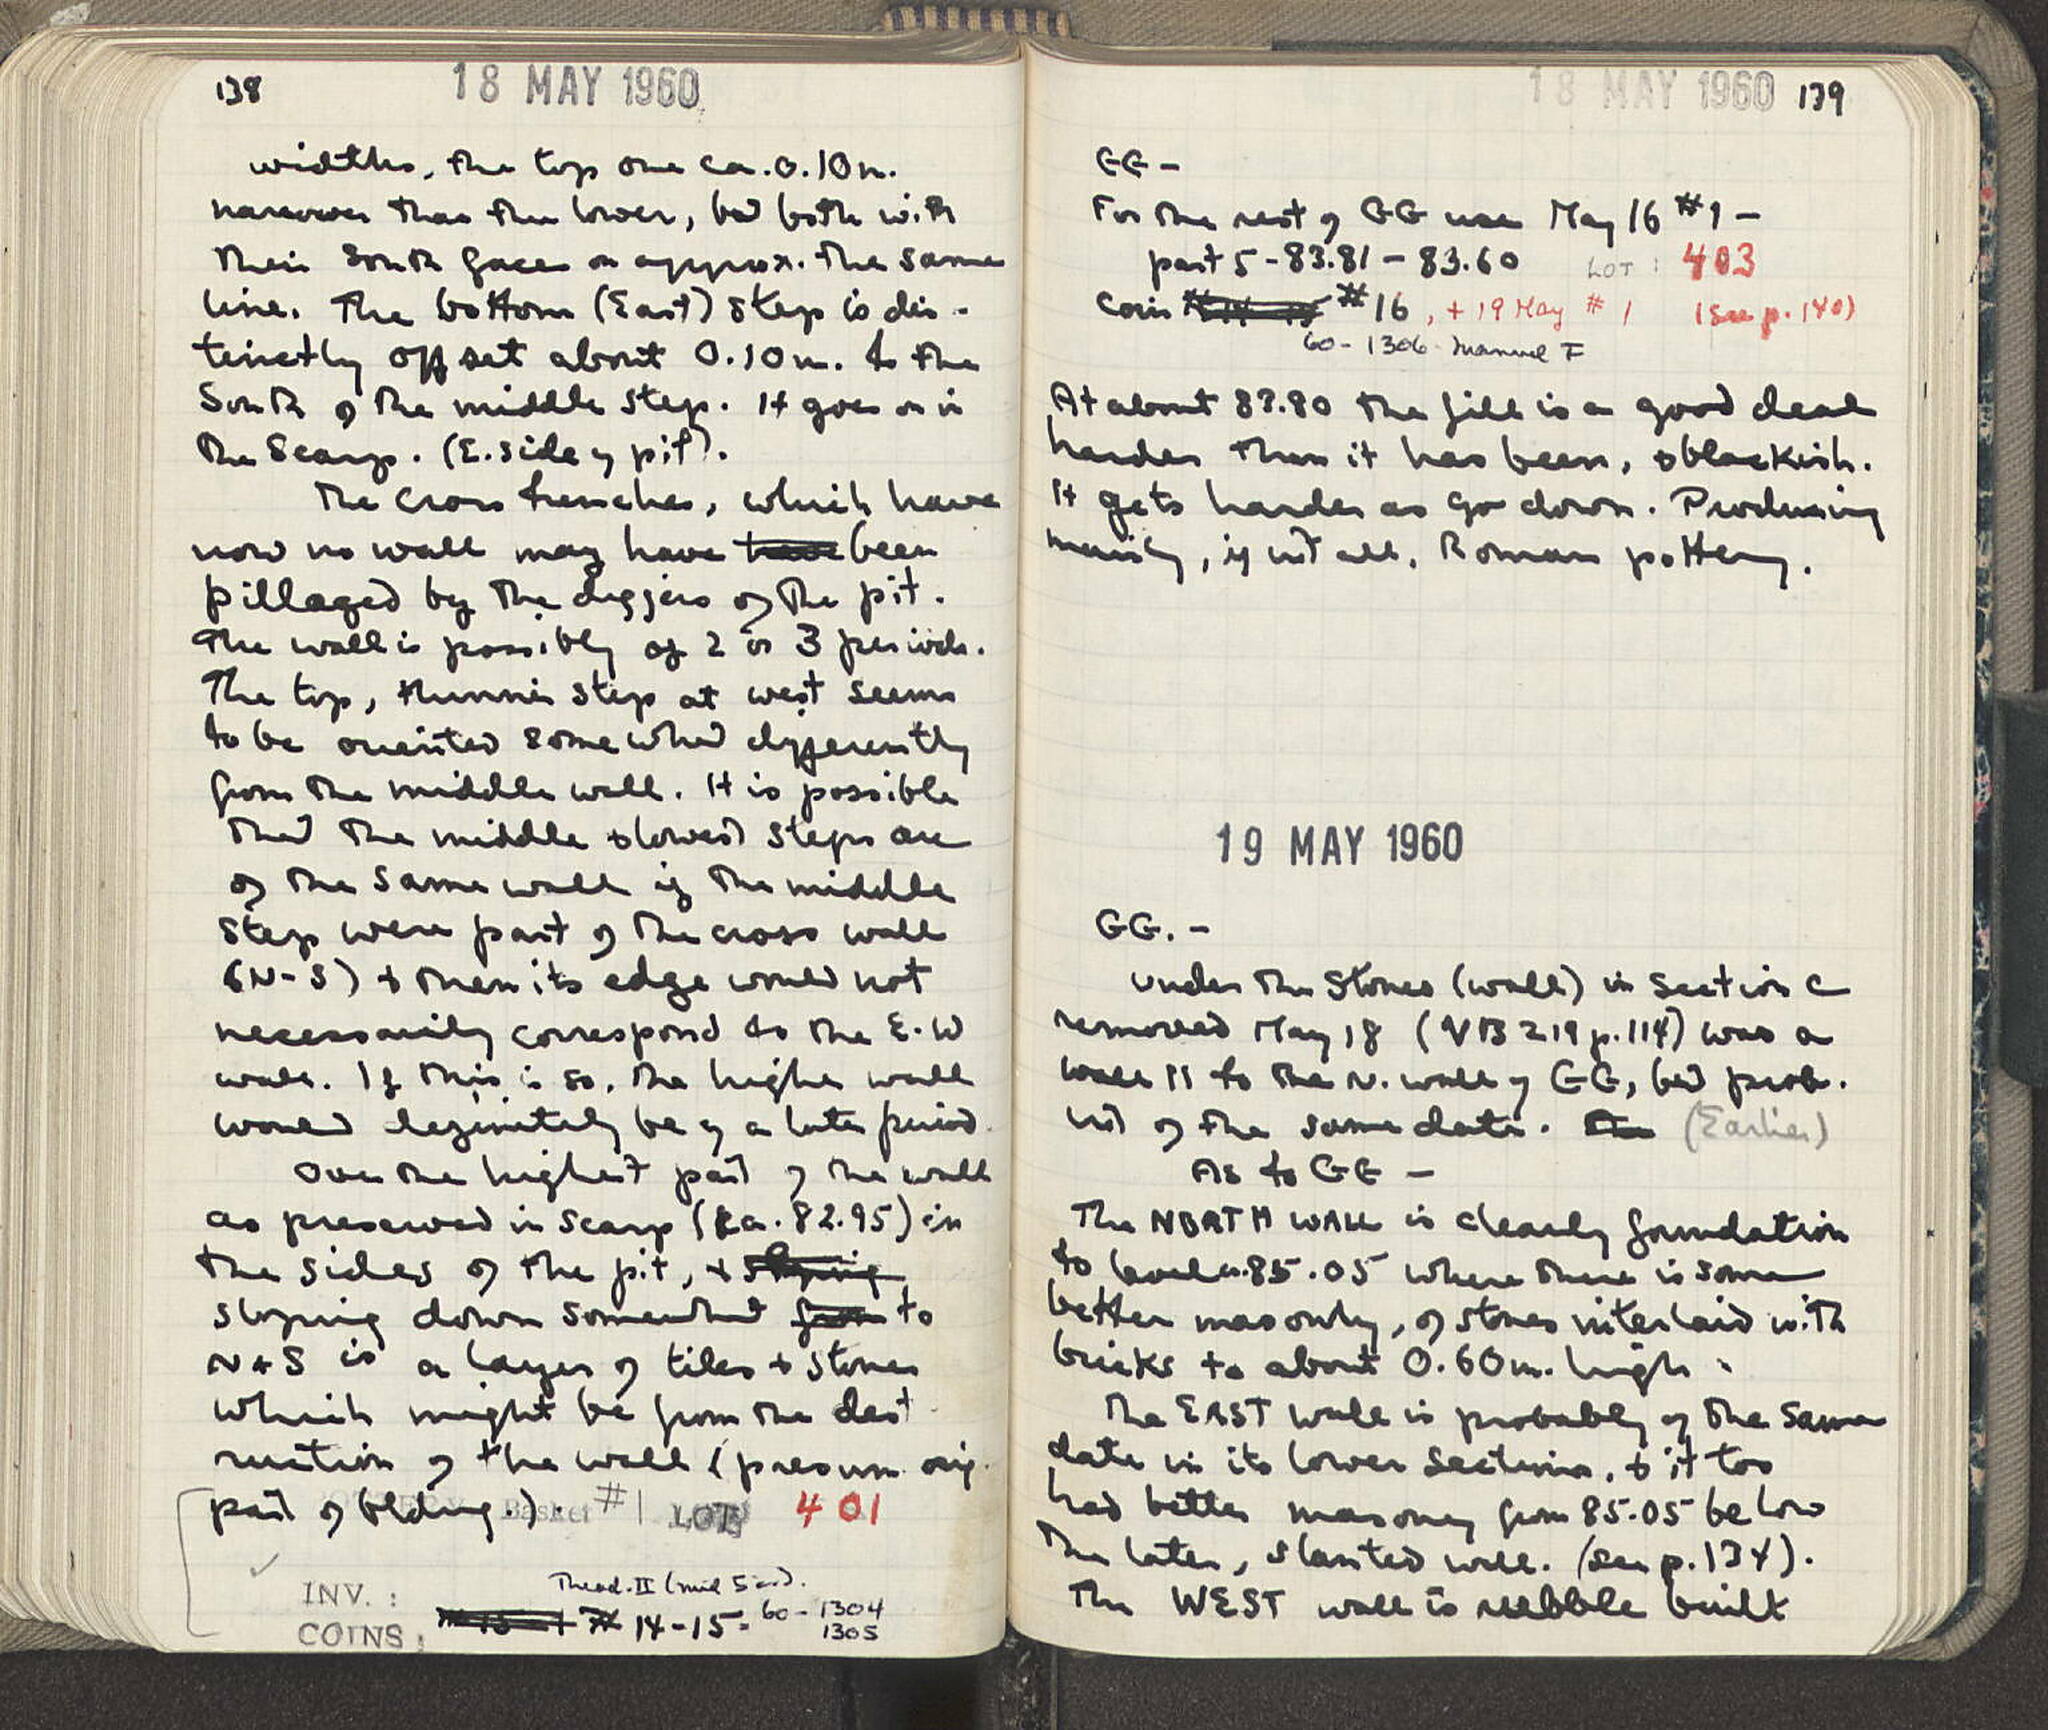 138
18 MAY 1960
widths, the top one ca. 0.10m.
narrower than the lower, but both with
their South faces on approx. the same
line. The bottom (East) step is dis-
tinctly offset about 0.10m. to the
South of the middle step. It goes on in
the Scarp. (E. side of pit).
The cross trenches, which have
now no wall may have have been
pillaged by the diggers of the pit.
The wall is possibly of 2 or 3 periods.
The top, thinner step at west seems
to be oriented somewhat differently
from the middle wall. It is possible
that the middle & lowest steps are
of the same wall if the middle
step were part of the cross wall
(N-S) & then its edge would not
necessarily correspond to the E-W
wall. If this is so, the higher wall
would definitely be of a later period.
Over the highest part of the wall
as preserved in scarp (ca. 82.95) in
the sides of the pit, & sloping
sloping down somewhat from to
N & S is a layer of tiles & stones
which might be from the dest-
ruction of the wall (presum. orig.
part of blding.). Basket #1 LOT 401
Theod. II (mid 5 cd).
INV. :
COINS : # 14-15 = 60-1304
1305
18 MAY 1960 139
GG -
For the rest of GG use May 16 #1 -
part 5 - 83.81 - 83.60 LOT : 403
Coin #16, + 19 May # 1 (see p. 140)
60-1306 Manuel I
At about 83.80 the fill is a good deal
harder than it has been, & blackish.
It gets harder as go down. Producing
mainly, if not all, Roman pottery.
19 MAY 1960
GG. -
Under the stones (wall) in Section C
removed May 18 (NB 219 p. 114) was a
wall 11 to the N. wall of GG, but prob.
not of the same date. The (Earlier)
As to GG -
The NORTH WALL is clearly foundation
to level ca. 85.05 where there is some
better masonry, of stones interlaid with
bricks to about 0.60m. high.
The EAST wall is probably of the same
date in its lower sections, & it too
had better masonry from 85.05 below
the later, slanted wall. (see p. 134).
The WEST wall is rubble built